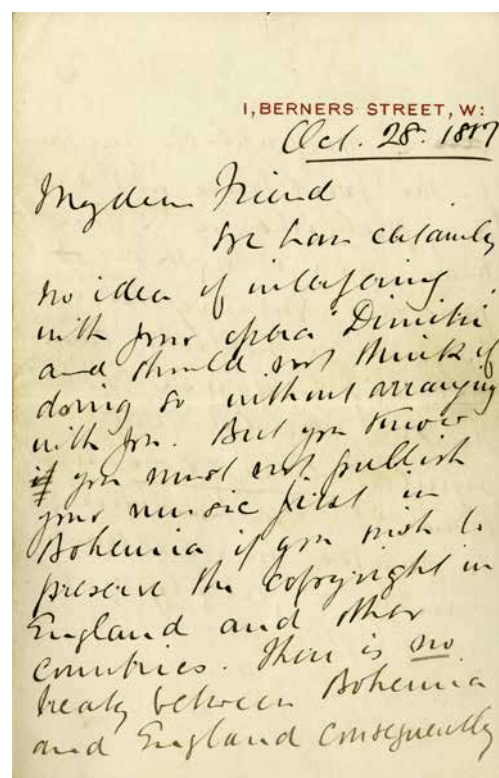 1, BERNERS STREET, W:
Oct. 28. 1887
My dear Friend
We have certainly
no idea of interfering
with your opera Dimitri
and should not think of
doing so without arranging
with you. But you know
you must not publish
your music first in
Bohemia if you wish to
preserve the copyright in
England and other
countries. There is no
treaty between Bohemia
and England consequently